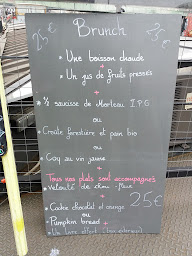 Brunch
25€ 25€
• Une boisson chaude
+
• Un jus de fruits pressés
+
• ½ saucisse de Morteau I.P.G
ou
• Croute forestière et pain bio
ou
• Coq au vin jaune
+
Tous nos plats sont accompagnés
• Velouté de chou-fleur
+ 25€
• Cookie chocolat et orange
ou
• Pumpkin bread
+
• Un livre offert